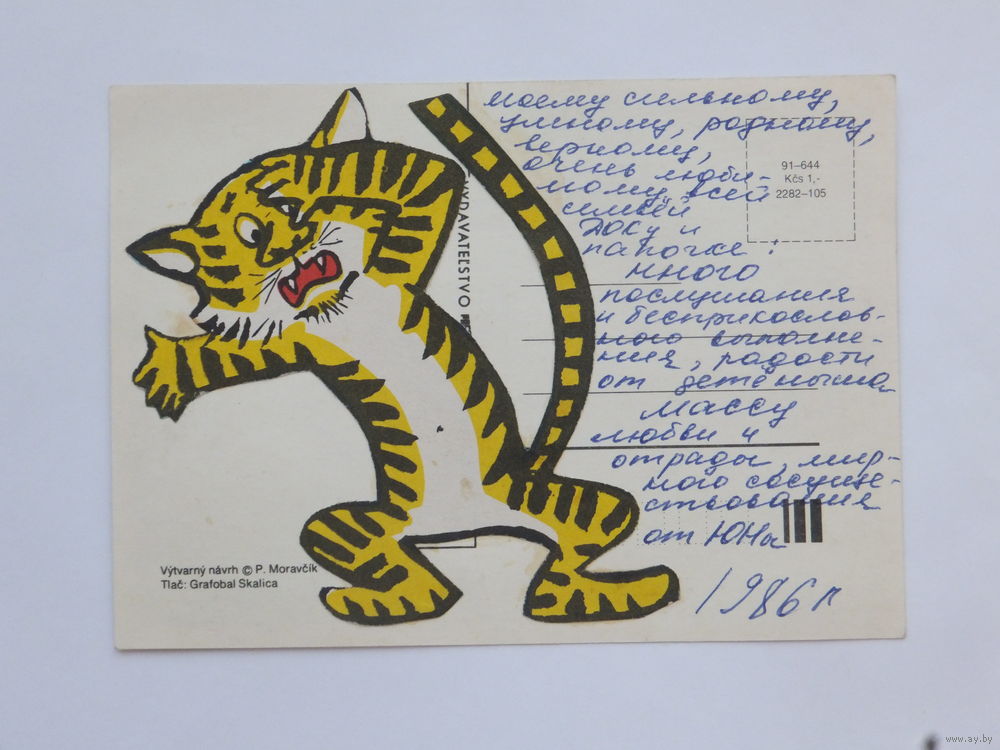 моему сильному,
умному, родному,
верному,
очень люби-
мому всей
семьёй
ДОКу и
папочке!
много
послушания
и беспрекослов-
ного выполне-
ния, радости
от детёныша
массу
любви и
отрады, мир-
ного сосущес-
твования
от ЮНы
1986 г
91–644
Kčs 1,-
2282–105
VYDAVATEĽSTVO
Výtvarný návrh © P. Moravčík
Tlač: Grafobal Skalica
www.ay.by